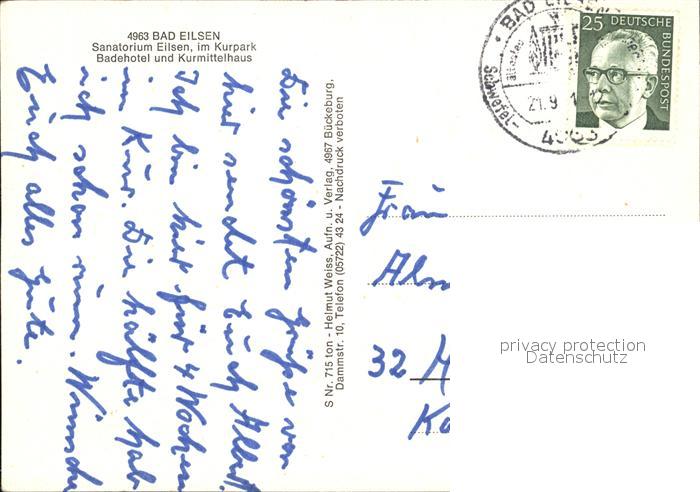 4963 BAD EILSEN
Sanatorium Eilsen, im Kurpark
Badehotel und Kurmittelhaus
Die schönsten Grüße von
hier sendet Euch Albert
Ich bin hier für 4 Wochen
in Kur. Die hälfte hab
ich schon rum. Wünsche
Euch alles gute.
S Nr. 715 ton - Helmut Weiss, Aufn. u. Verlag, 4967 Bückeburg,
Dammstr. 10, Telefon (05722) 43 24 - Nachdruck verboten
BAD EILSEN
Schwefel-
21.9
4963
25 DEUTSCHE
BUNDESPOST
Frau
32 H
privacy protection
Datenschutz